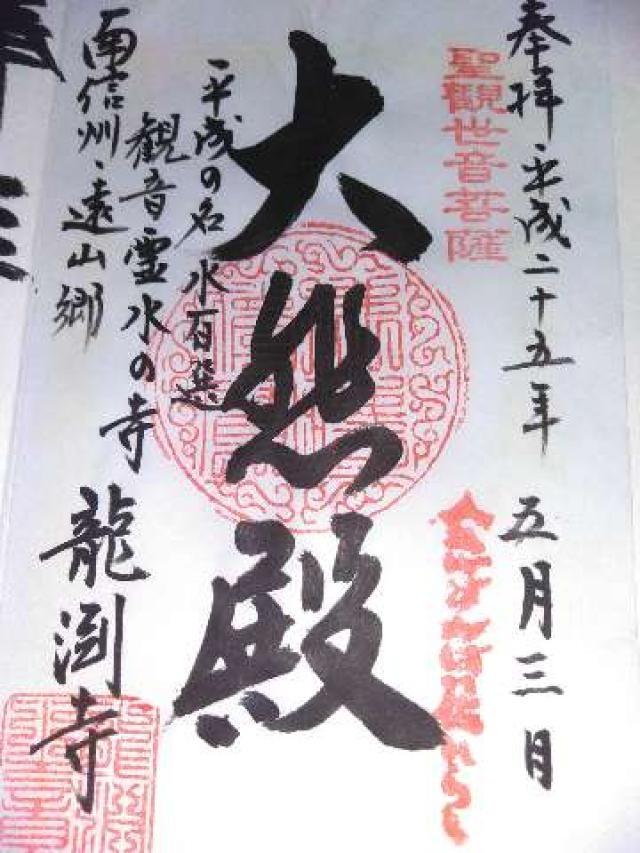 奉拝・平成二十五年 五月三日
聖觀世音菩薩
大悲殿
平成の名水百選
観音霊水の寺
南信州・遠山郷
龍渕寺